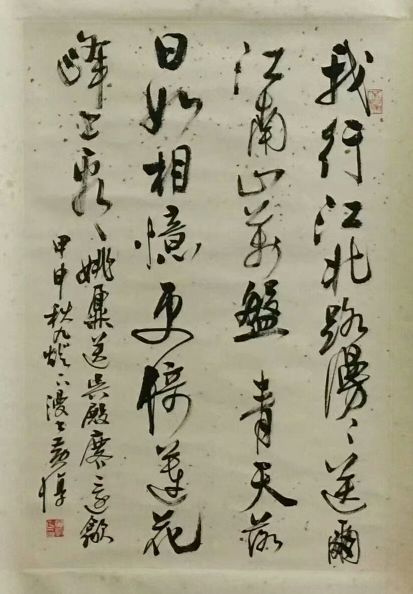 我行江北路漫〻送爾
江南山萬盤青天落
日如相憶更倚蓮花
峰上看〻姚鼐送吳殿麐還歙
甲申秋九黃惇